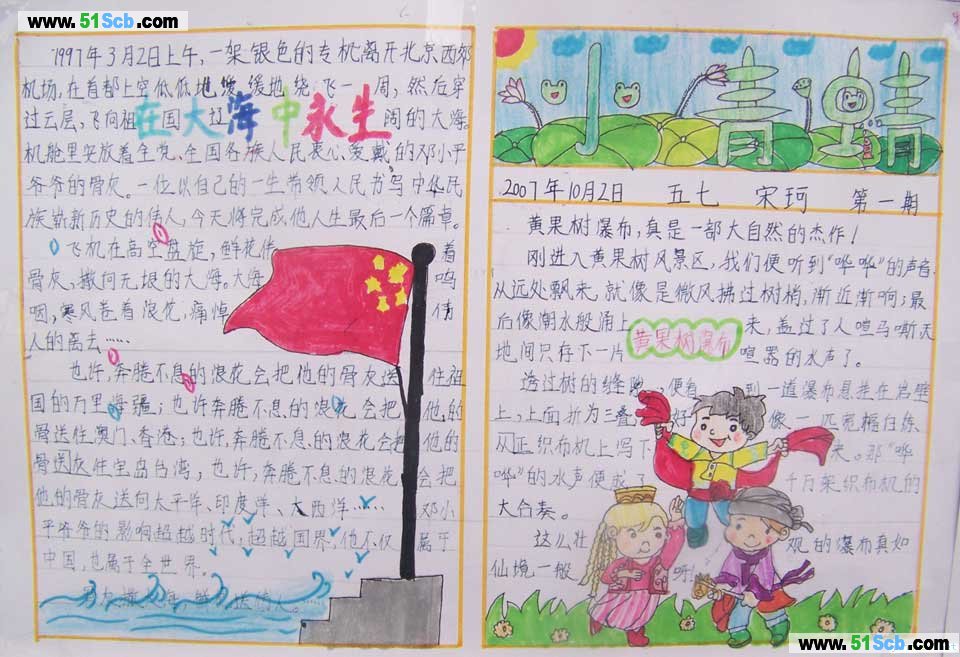 www.51Scb.com
1997年3月2日上午，一架银色的专机离开北京西郊
机场，在首都上空低低地，缓缓地绕飞一周，然后穿
过云层，飞向祖国辽阔的大海。
在大海中永生
机舱里安放着全党、全国各族人民衷心爱戴的邓小平
爷爷的骨灰。一位以自己的一生带领人民书写中华民
族崭新历史的伟人，今天将完成他人生最后一个篇章。
飞机在高空盘旋，鲜花伴着
骨灰，撒向无垠的大海。大海呜
咽，寒风卷着浪花，痛悼伟
人的离去……
也许，奔腾不息的浪花会把他的骨灰送往祖
国的万里海疆；也许奔腾不息的浪花会把他的
骨送往澳门、香港；也许，奔腾不息的浪花会把他的
骨送灰往宝岛台湾；也许，奔腾不息的浪花会把
他的骨灰送向太平洋、印度洋、大西洋……邓小
平爷爷的影响超越时代，超越国界，他不仅属于
中国，也属于全世界。
2007年10月2日 五七 宋珂 第一期
黄果树瀑布，真是一部大自然的杰作！
刚进入黄果树风景区，我们便听到“哗哗”的声音
从远处飘来，就像是微风拂过树梢，渐近渐响；最
后像潮水般涌上来，盖过了人喧马嘶天
地间只存下一片喧嚣的水声了。
黄果树瀑布
透过树的缝隙，便看到一道瀑布悬挂在岩壁
上，上面折为三叠，好像一匹宽幅白练
从正织布机上泻下来。那“哗
哗”的水声便成了千万架织布机的
大合奏。
这么壮观的瀑布真如
仙境一般呀！
www.51Scb.com